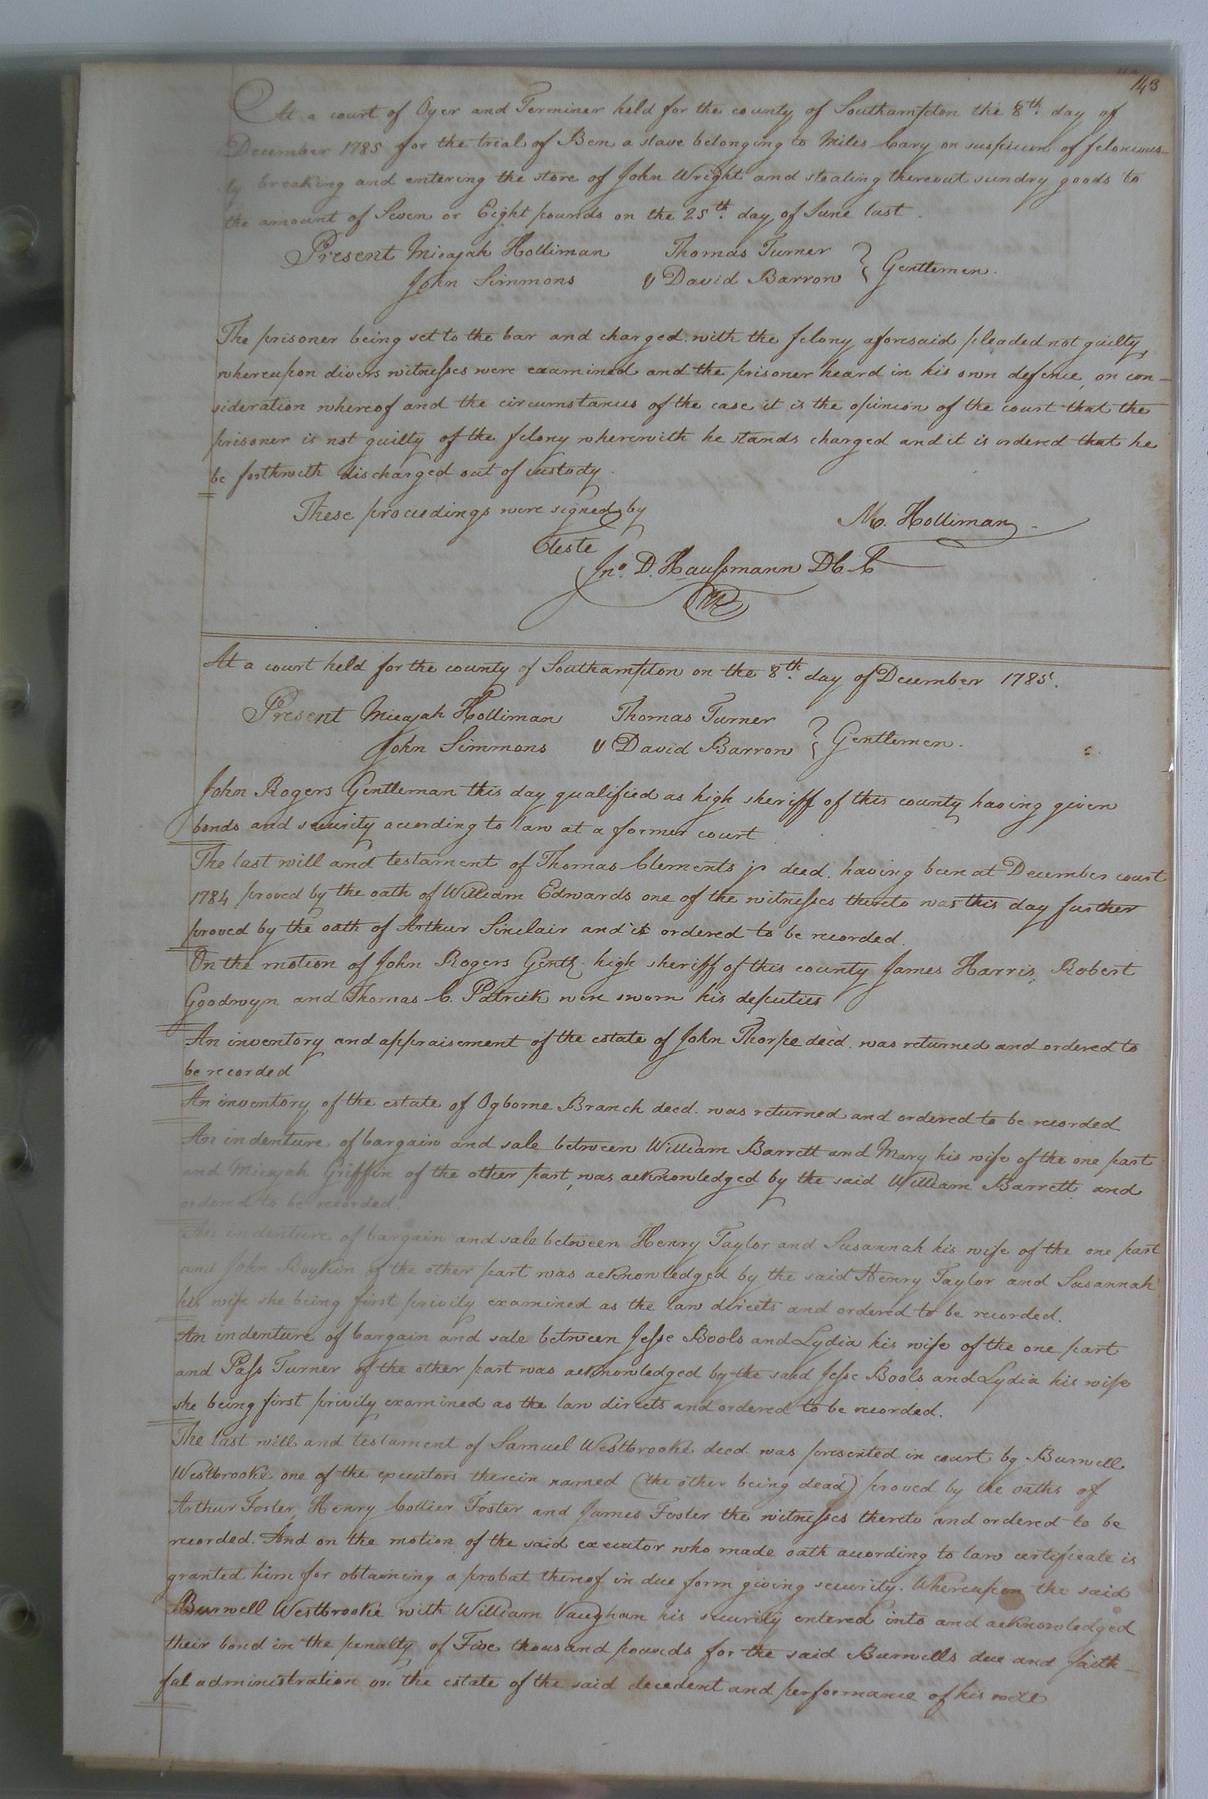 143
At a court of Oyer and Terminer held for the county of Southampton the 8th. day of
December 1785 for the trial of Ben a slave belonging to Miles Cary on suspicion of felonious-
ly breaking and entering the store of John Wright and stealing thereout sundry goods to
the amount of Seven or Eight pounds on the 25th. day of June last.
Present Micajah Holliman Thomas Turner
John Simmons & David Barrow } Gentlemen.
The prisoner being set to the bar and charged with the felony aforesaid pleaded not guilty,
whereupon divers witnesses were examined and the prisoner heard in his own defence, on con-
sideration whereof and the circumstances of the case it is the opinion of the court that the
prisoner is not guilty of the felony wherewith he stands charged and it is ordered that he
be forthwith discharged out of custody.
These proceedings were signed by M. Holliman
Teste
Jno. D. Haussmann DCC
At a court held for the county of Southampton on the 8th. day of December 1785.
Present Micajah Holliman Thomas Turner
John Simmons & David Barrow } Gentlemen.
John Rogers Gentleman this day qualified as high sheriff of this county having given
bonds and security according to law at a former court
The last will and testament of Thomas Clements jr decd. having been at December court
1784 proved by the oath of William Edwards one of the witnesses thereto was this day further
proved by the oath of Arthur Sinclair and is ordered to be recorded.
On the motion of John Rogers Gentl. high sheriff of this county James Harris, Robert
Goodwyn and Thomas C. Patrick were sworn his deputies
An inventory and appraisement of the estate of John Thorpe decd. was returned and ordered to
be recorded
An inventory of the estate of Ogborne Branch decd. was returned and ordered to be recorded
An indenture of bargain and sale between William Barrett and Mary his wife of the one part
and Micajah Griffin of the other part, was acknowledged by the said William Barrett and
ordered to be recorded.
An indenture of bargain and sale between Henry Taylor and Susannah his wife of the one part
and John Boykin of the other part was acknowledged by the said Henry Taylor and Susannah
his wife she being first privily examined as the law directs and ordered to be recorded.
An indenture of bargain and sale between Jesse Bools and Lydia his wife of the one part
and Pass Turner of the other part was acknowledged by the said Jesse Bools and Lydia his wife
she being first privily examined as the law directs and ordered to be recorded.
The last will and testament of Samuel Westbrooke decd. was presented in court by Burwell
Westbrooke one of the executors therein named (the other being dead) proved by the oaths of
Arthur Foster, Henry Collier Foster and James Foster the witnesses thereto and ordered to be
recorded. And on the motion of the said executor who made oath according to law certificate is
granted him for obtaining a probat thereof in due form giving security. Whereupon the said
Burwell Westbrooke with William Vaughan his security entered into and acknowledged
their bond in the penalty of Five thousand pounds for the said Burwells due and faith-
ful administration on the estate of the said decedent and performance of his will